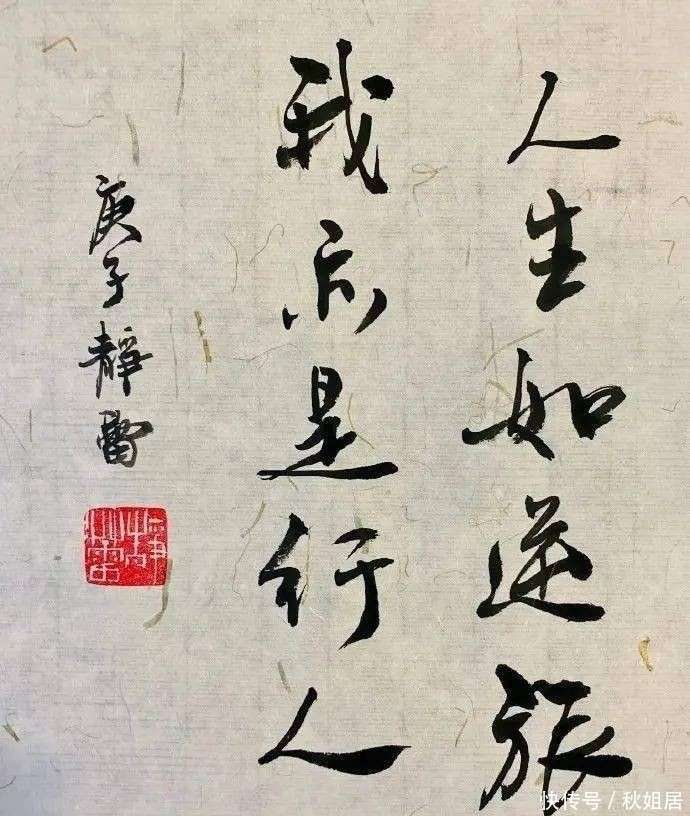 人生如逆旅
我亦是行人
庚子靜雷
快传号/秋姐居